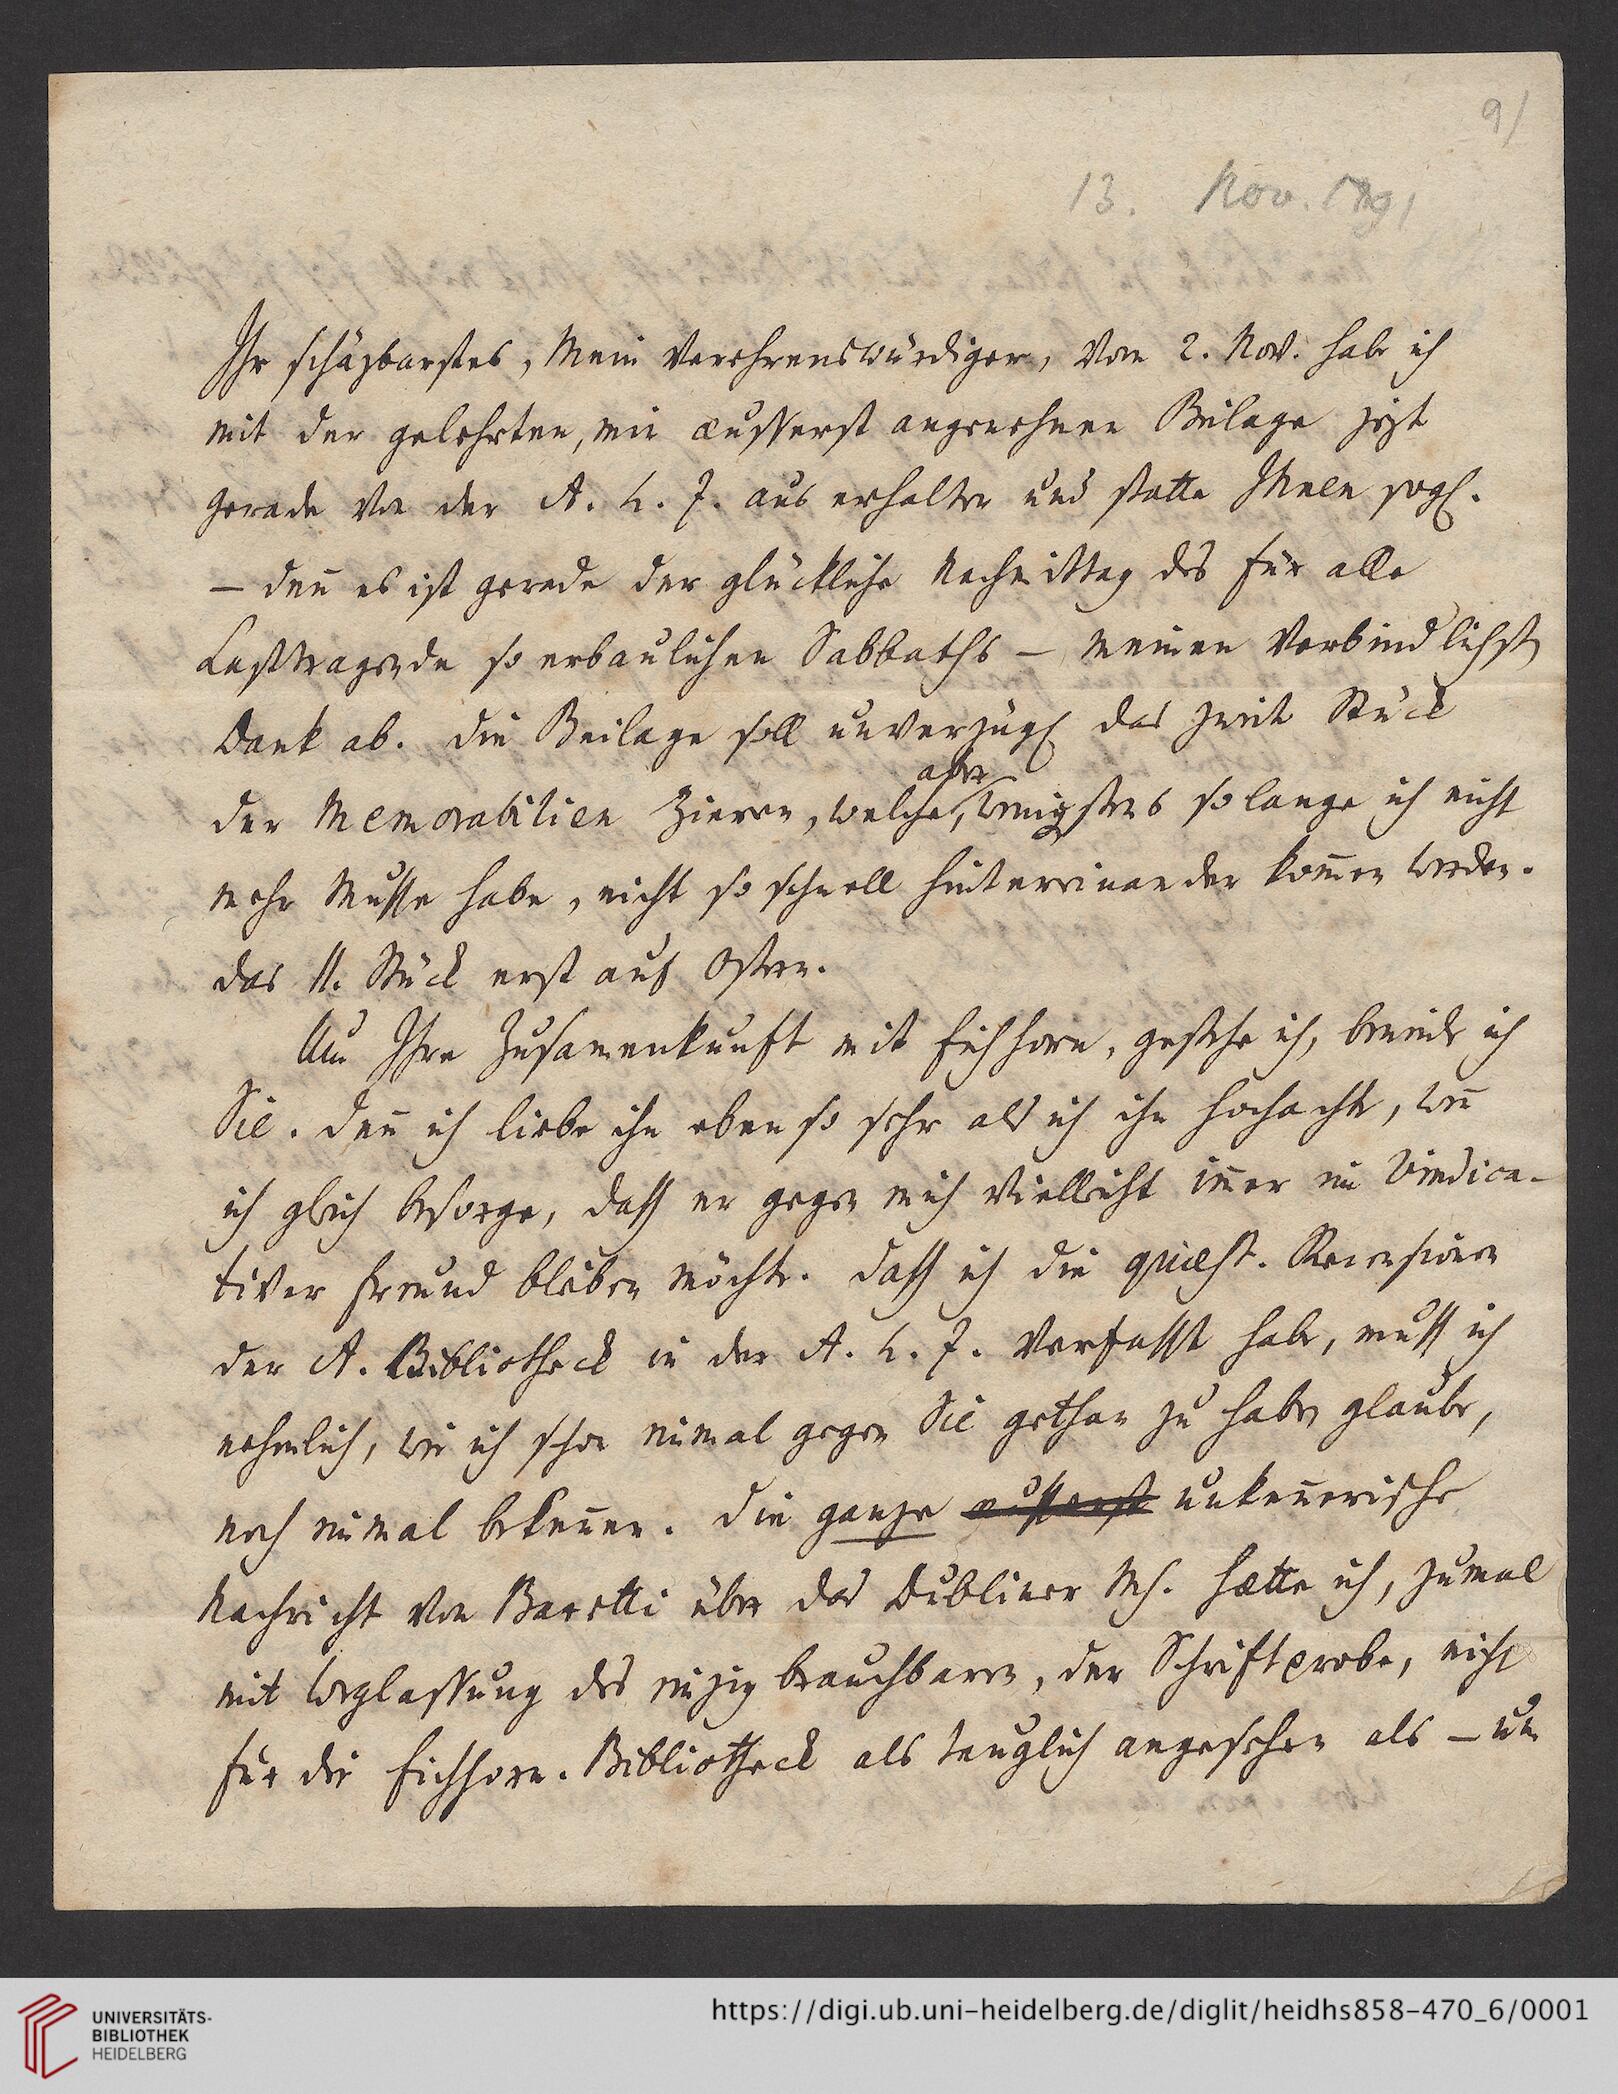 9)
13. Nov. 1791
Ihr schäzbarstes, Mein Verehrenswürdiger, vom 2. Nov. habe ich
mit der gelehrten, mir æusserst angenehmen Beilage jezt
gerade von der A. L. Z. aus erhalten und statte Ihnen sogl.
– deñ es ist gerade der glückliche Nachmittag des für alle
Lasttragende so erbaulichen Sabbaths – meinen verbindlichsten
Dank ab. Die Beilage soll unverzügl das zweite Stück
aber
der Memorabilien zieren, welche, wenigstens so lange ich nicht
mehr Musse habe, nicht so schnell hintereinander kom̄en werden.
Das II. Stück erst auf Ostern.
Um Ihre Zusamenkunft mit Eichhorn, gestehe ich, beneide ich
Sie. Deñ ich liebe ihn eben so sehr als ich ihn hochachte, weñ
ich gleich besorge, dass er gegen mich vielleicht im̄er ein vindica-
tiver Freund bleiben möchte. Dass ich die quæst. Recensionen
der A. Bibliotheck in der A. L. Z. verfasst habe, muss ich
nehmlich, wie ich schon einmal gegen Sie gethan zu haben glaube,
noch einmal bekeñen. Die ganze äusserst unkeñerische
Nachricht von Baretti über das Dubliner Ms. hætte ich, zumal
mit Weglassung des einzig brauchbaren, der Schriftprobe, nicht
für die Eichhorn. Bibliotheck als tauglich angesehen als – um
UNIVERSITÄTS-
BIBLIOTHEK
HEIDELBERG
https://digi.ub.uni-heidelberg.de/diglit/heidhs858-470_6/0001